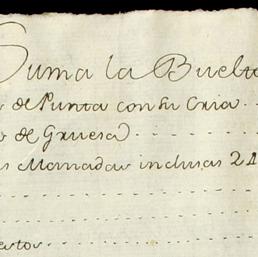 Suma la Buelta
de Punta con su Cria
de Gruesa
Manadas inclusas 21